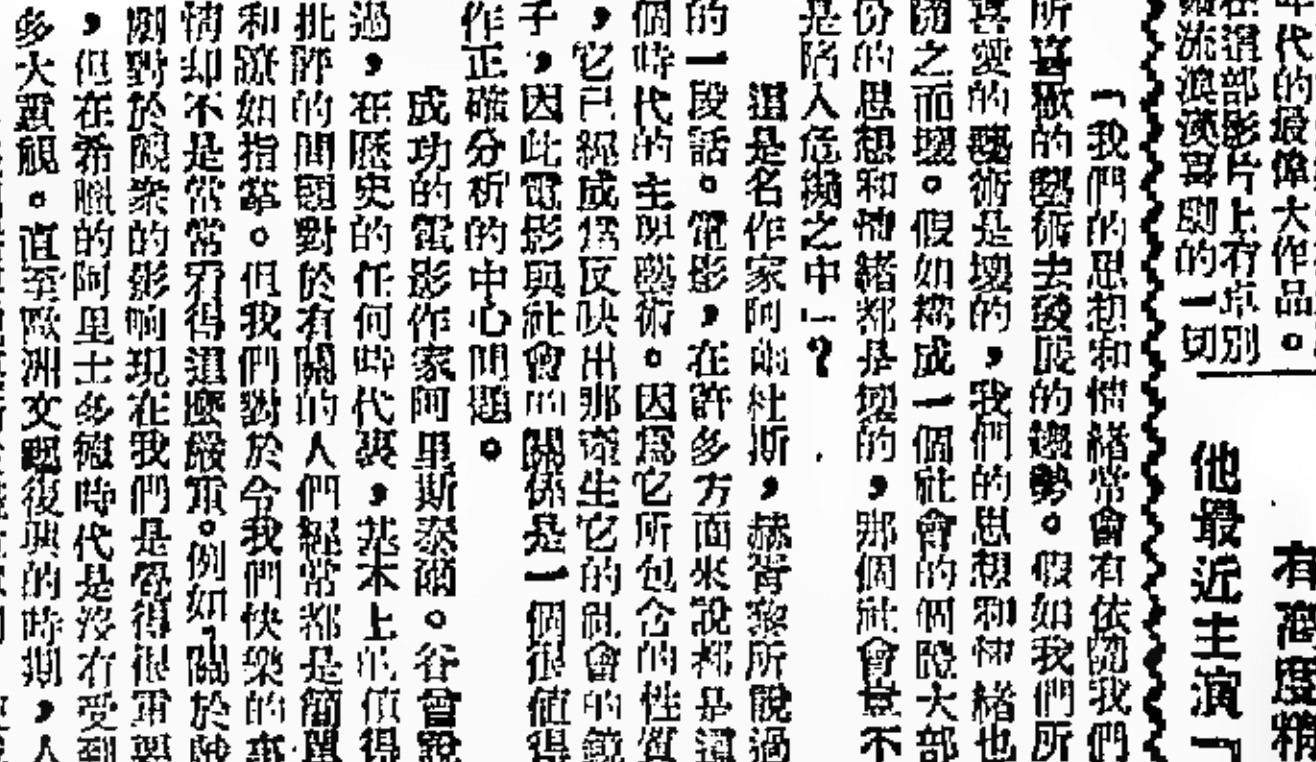 年代的最偉大作品。
在這部影片上有京別
流浪漢喜劇的一切
他最近主演「
「我們的思想和情緒常會有依關我們
所喜歡的藝術去發展的趨勢。假如我們所
喜愛的藝術是壞的,我們的思想和情緒也
隨之而壞。假如構成一個社會的個體大部
份的思想和情緒都是壞的,那個社會豈不
是陷入危瀕之中」?
這是名作家阿爾杜斯,赫胥黎所說過
的一段話。電影,在許多方面來說都是這
個時代的主要藝術。因為它所包含的性質
,它已經成為反映出那產生它的社會的鏡
子,因此電影與社會的關係是一個很值得
作正確分析的中心問題。
成功的電影作家阿里斯泰爾。谷曾說
過,在歷史的任何時代裏,基本上的值得
批評的問題對於有關的人們經常都是簡單
和瞭如指掌。但我們對於令我們快樂的事
情却不是常常看得這麼嚴重。例如,關於戲
劇對於觀眾的影响現在我們是覺得很重要
,但在希臘的阿里士多德時代是沒有受到
多大重視。直至歐洲文藝復興的時期,人